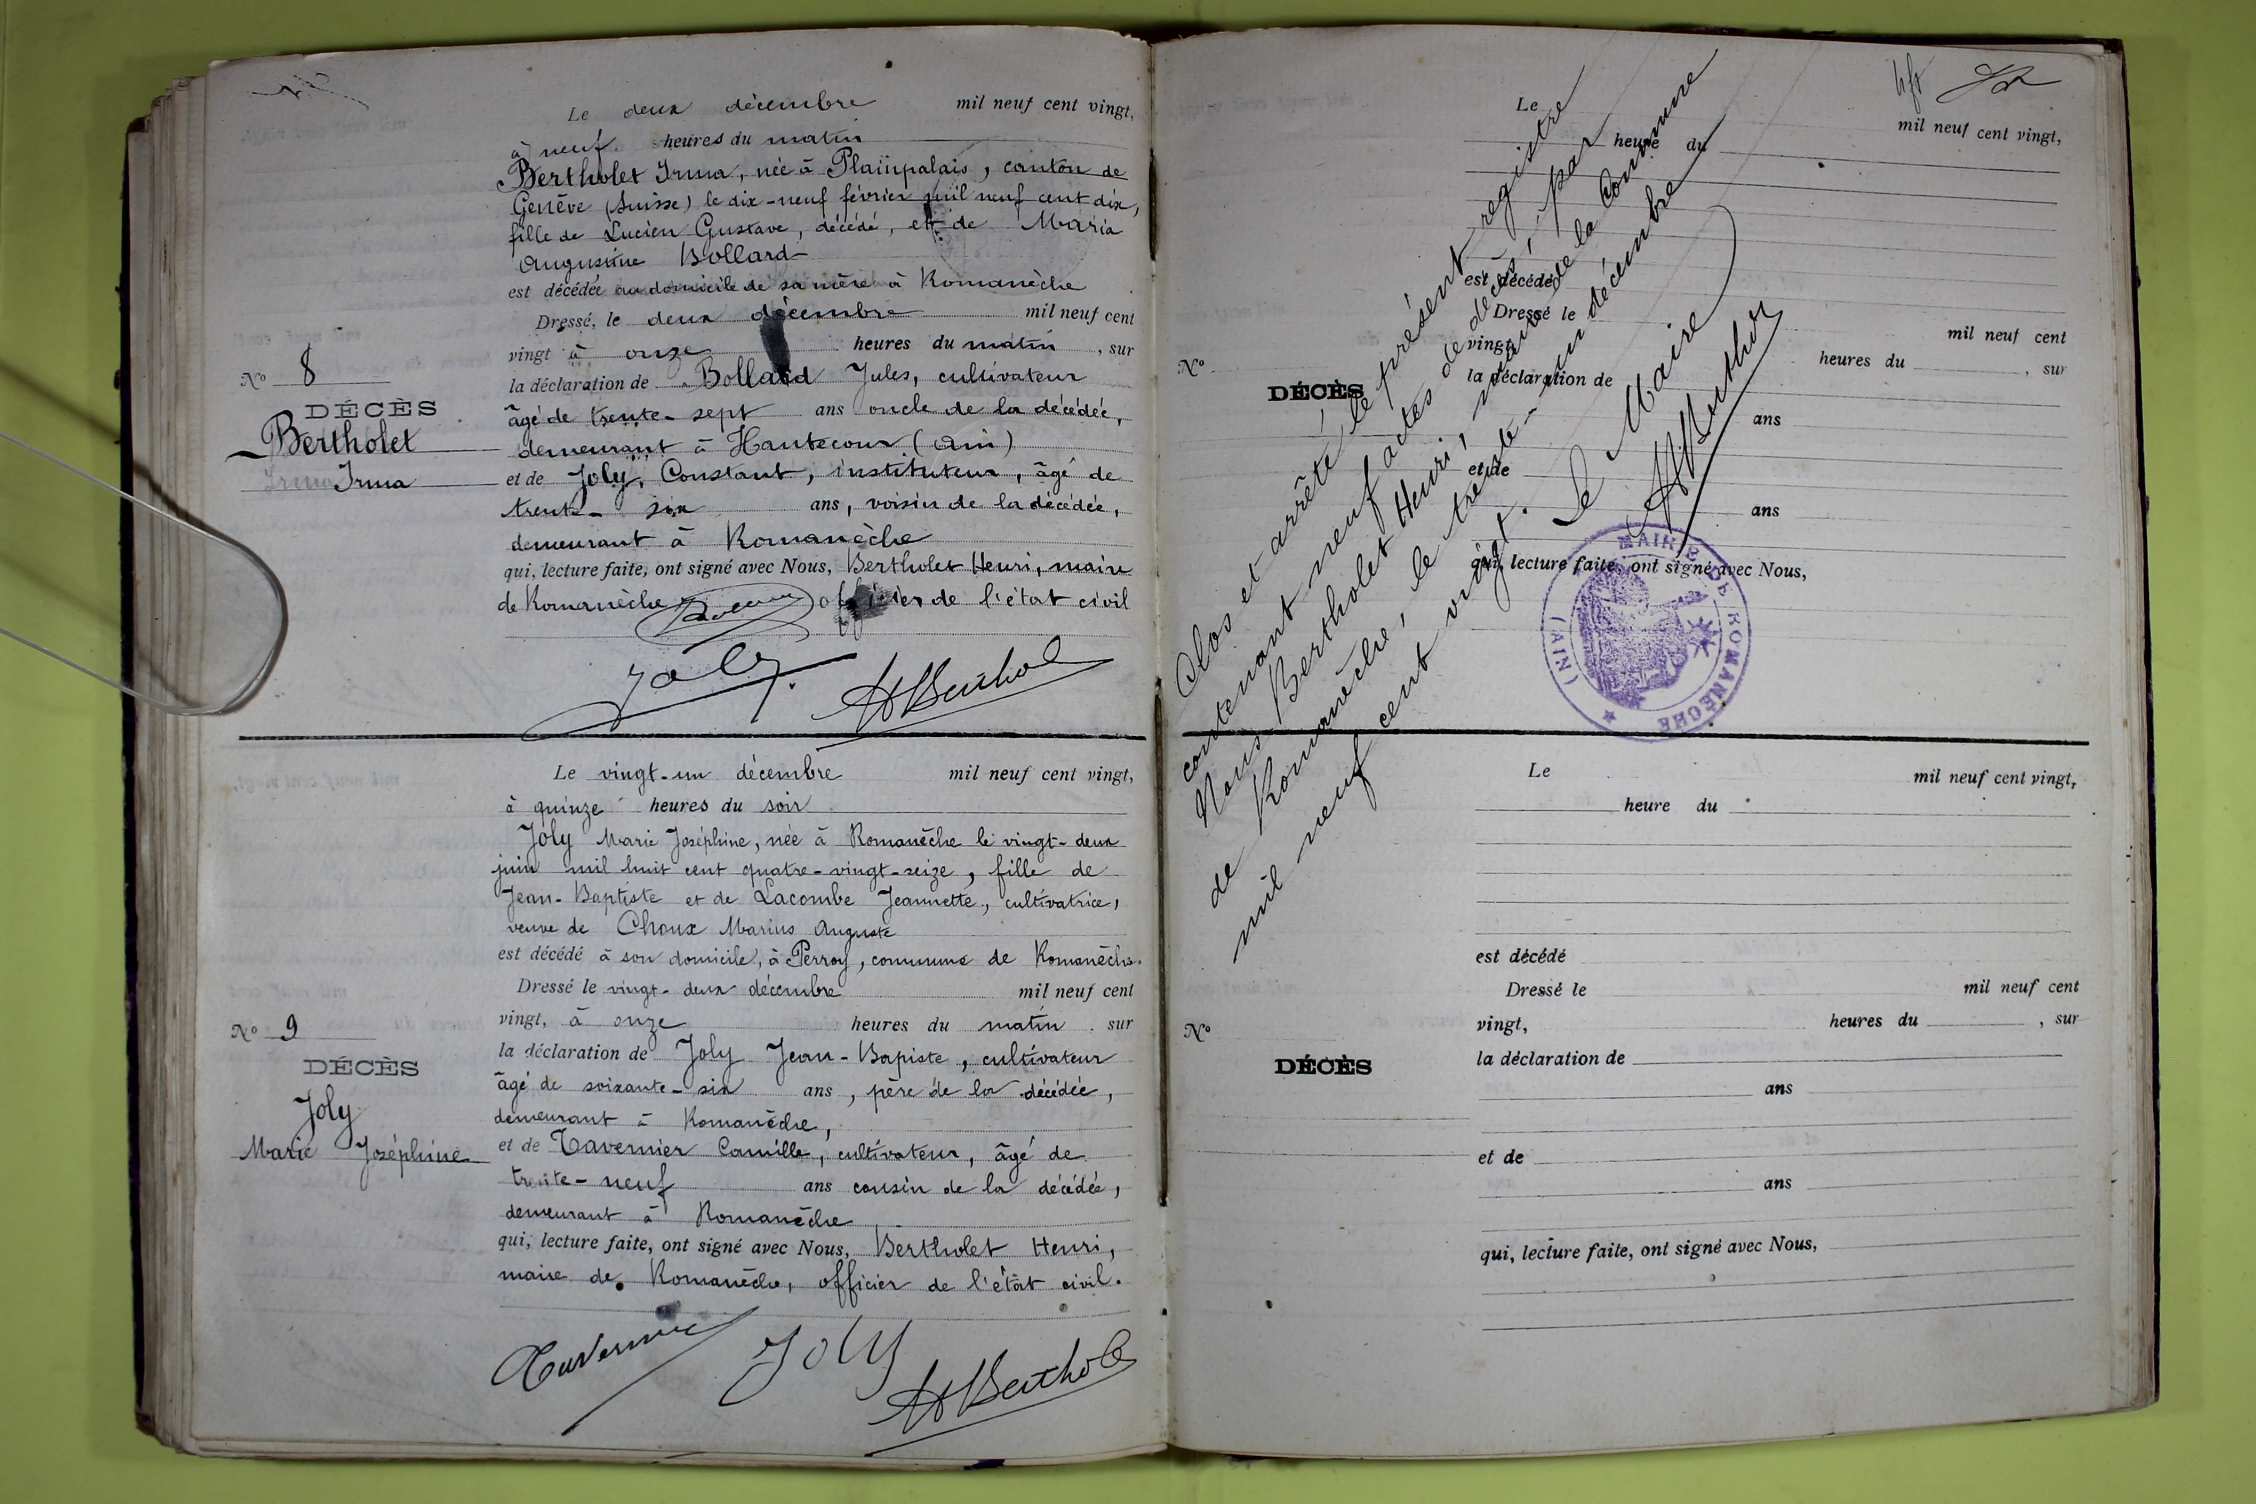 Le deux décembre mil neuf cent vingt,
à neuf heures du matin
Bertholet Irma, née à Plainpalais, canton de
Genève (Suisse) le dix-neuf février mil neuf cent dix,
fille de Lucien Gustave, décédé, et de Maria
Augustine Bollard
est décédée au domicile de sa mère à Romanèche
Dressé, le deux décembre mil neuf cent
vingt à onze heures du matin, sur
la déclaration de Bollard Jules, cultivateur
âgé de trente-sept ans oncle de la décédée,
demeurant à Hautecour (Ain)
et de Joly, Constant, instituteur, âgé de
trente-six ans, voisin de la décédée,
demeurant à Romanèche
qui, lecture faite, ont signé avec Nous, Bertholet Henri, maire
de Romanèche officier de l'état civil
Joly
HBerthol
No 8
DÉCÈS
Bertholet
Irma
Le vingt-un décembre mil neuf cent vingt,
à quinze heures du soir
Joly Marie Joséphine, née à Romanèche le vingt-deux
juin mil huit cent quatre-vingt-seize, fille de
Jean-Baptiste et de Lacombe Jeannette, cultivatrice,
veuve de Choux Marius Auguste
est décédé à son domicile, à Perroy, commune de Romanèche.
Dressé le vingt-deux décembre mil neuf cent
vingt, à onze heures du matin. sur
la déclaration de Joly Jean-Bapiste, cultivateur
âgé de soixante-six ans, père de la décédée,
demeurant à Romanèche,
et de Tavernier Camille, cultivateur, âgé de
trente-neuf ans cousin de la décédée,
demeurant à Romanèche
qui, lecture faite, ont signé avec Nous, Bertholet Henri,
maire de Romanèche, officier de l'état civil.
Tavernier
Joly
HBerthol
No 9
DÉCÈS
Joly
Marie Joséphine
Le mil neuf cent vingt,
heure du
est décédé
Dressé le mil neuf cent
vingt, heures du , sur
la déclaration de
ans
et de
ans
qui, lecture faite, ont signé avec Nous,
No
DÉCÈS
Clos et arrêté le présent registre
contenant neuf actes de décès, par
Nous Bertholet Henri, maire de la Commune
de Romanèche, le trente-un décembre
mil neuf cent vingt. Le Maire
HBerthol
MAIRIE DE ROMANÈCHE
(AIN)
Le mil neuf cent vingt,
heure du
est décédé
Dressé le mil neuf cent
vingt, heures du , sur
la déclaration de
ans
et de
ans
qui, lecture faite, ont signé avec Nous,
No
DÉCÈS